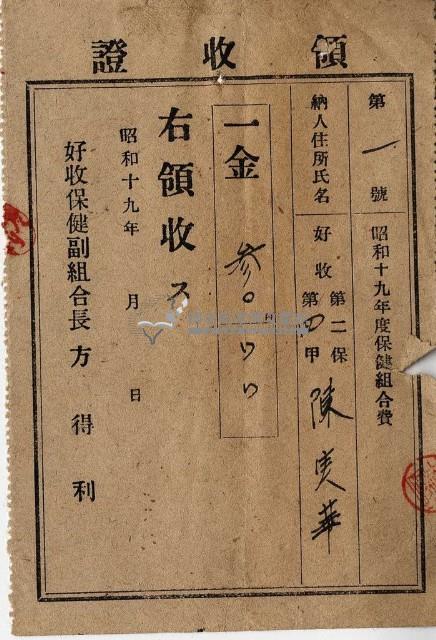 領收證
第一號 昭和十九年度保健組合費
納人住所氏名 好收 第二保 第四甲 陳 華
一金 參〇
右領收ス
昭和十九年 月 日
好收保健副組合長 方 得 利